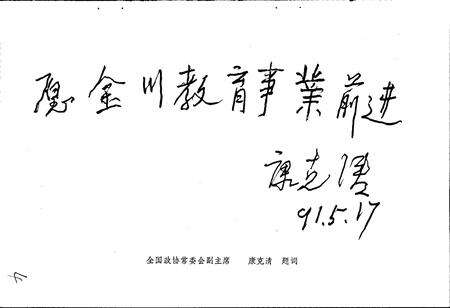 愿金川教育事业前进
康克清
91.5.17
全国政协常委会副主席 康克清 题词